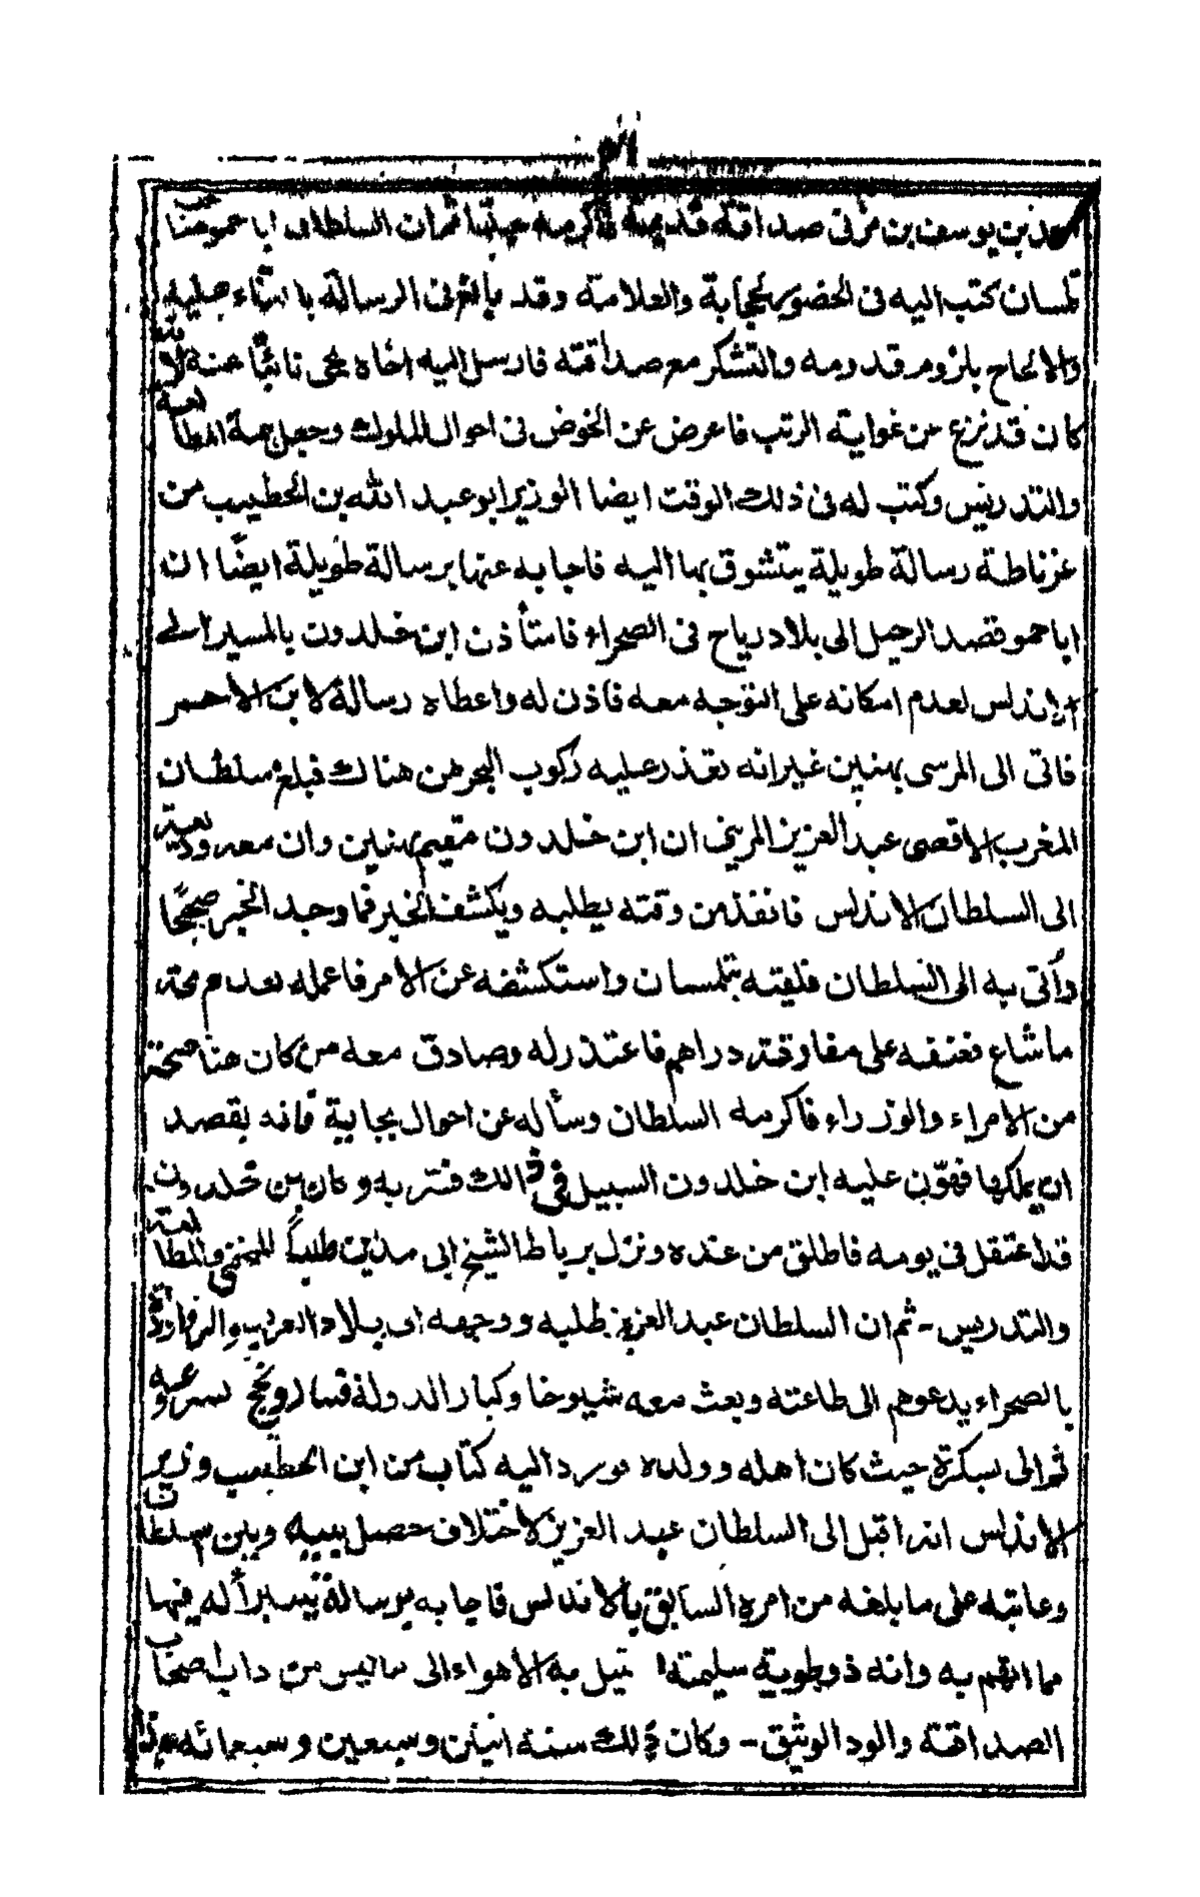 احمد بن يوسف بن مزنى صداقة قديمة فاكرمه جدا ثم ان السلطان ابا حمو صاحب
تلمسان كتب اليه فى الحضور لحجابة والعلامة وقد بالغ فى الرسالة بالثناء عليه
والالحاح بلزوم قدومه والتشكر مع صداقته فارسل اليه اخاه يحيى نائبًا عنه لانه
كان قد نزع عن غواية الرتب فاعرض عن الخوض فى احوال الملوك وجعل همة المطالعة
والتدريس وكتب له فى ذلك الوقت ايضا الوزير ابو عبد الله بن الخطيب من
غرناطة رسالة طويلة يتشوق بها اليه فاجابه عنها برسالة طويلة ايضًا ان
ابا حمو قصد الرحيل الى بلاد رياح فى الصحراء فاستأذن ابن خلدون بالمسير الى
الاندلس لعدم امكانه على التوجه معه فاذن له واعطاه رسالة لابن الاحمر
فاتى الى المرسى بهنين غير انه تعذر عليه ركوب البحر من هناك فبلغ سلطان
المغرب الاقصى عبد العزيز المرينى ان ابن خلدون مقيم بهنين وان معه وديعة
الى السلطان الاندلس فانفذ من وقته يطلبه ويكشف الخبر فما وجد الخبر صحيحًا
وأتى به الى السلطان فلقيه بتلمسان واستكشفه عن الامر فاعمله بعدم صحة
ما شاع فعنفه على مفارقته دراهم فاعتذر له وصادق معه من كان هنا صحته
من الامراء والوزراء فاكرمه السلطان وسأله عن احوال بجاية فانه يقصد
ان يملكها فهوّن عليه ابن خلدون السبيل فى ذالك فسر به وكان ابن خلدون
قد اعتقل فى يومه فاطلق من عنده ونزل برباط الشيخ ابى مدين طلبًا للمطالعة
والتدريس - ثم ان السلطان عبد العزيز طلبه ووجهه الى بلاد العرب والزفاودة
بالصحراء يدعوهم الى طاعته وبعث معه شيوخا وكبار الدولة فسار ونجح بسرعة و
ثم الى بسكرة حيث كان اهله وولده ورد اليه كتاب من ابن الخطيب وزير
الاندلس انه اقبل الى السلطان عبد العزيز لاختلاف حصل بينه وبين سلطانه
وعاتبه على ما بلغه من امره السابق بالاندلس فاجابه برسالة تبرأ له فيها
مما اتهم به وانه ذو طوية سليمة تميل به الاهواء الى ما ليس من داب اصحاب
الصداقة والود الوثيق - وكان ذلك سنة اثنين وسبعين وسبعمائة